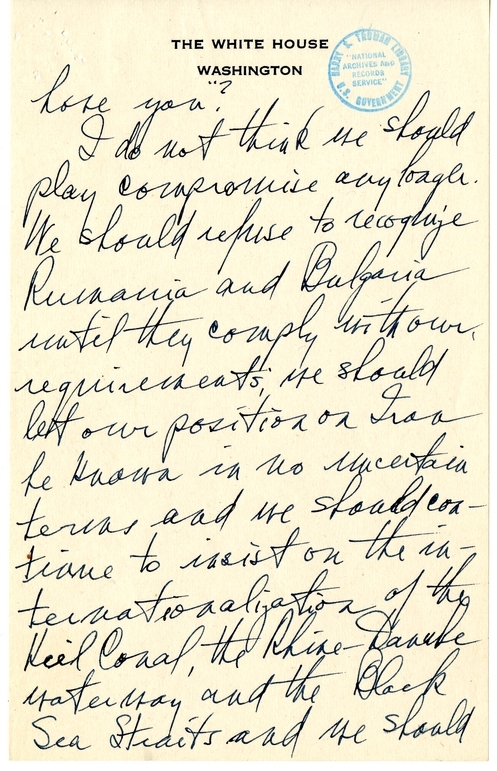 THE WHITE HOUSE
WASHINGTON
HARRY S. TRUMAN LIBRARY
"NATIONAL
ARCHIVES AND
RECORDS
SERVICE"
U.S. GOVERNMENT
have you"?
I do not think we should
play compromise any longer.
We should refuse to recognize
Rumania and Bulgaria
until they comply with our
requirements; we should
let our position on Iran
be known in no uncertain
terms and we should con-
tinue to insist on the in-
ternationalization of the
Kiel Canal, the Rhine-Danube
waterway and the Black
Sea Straits and we should